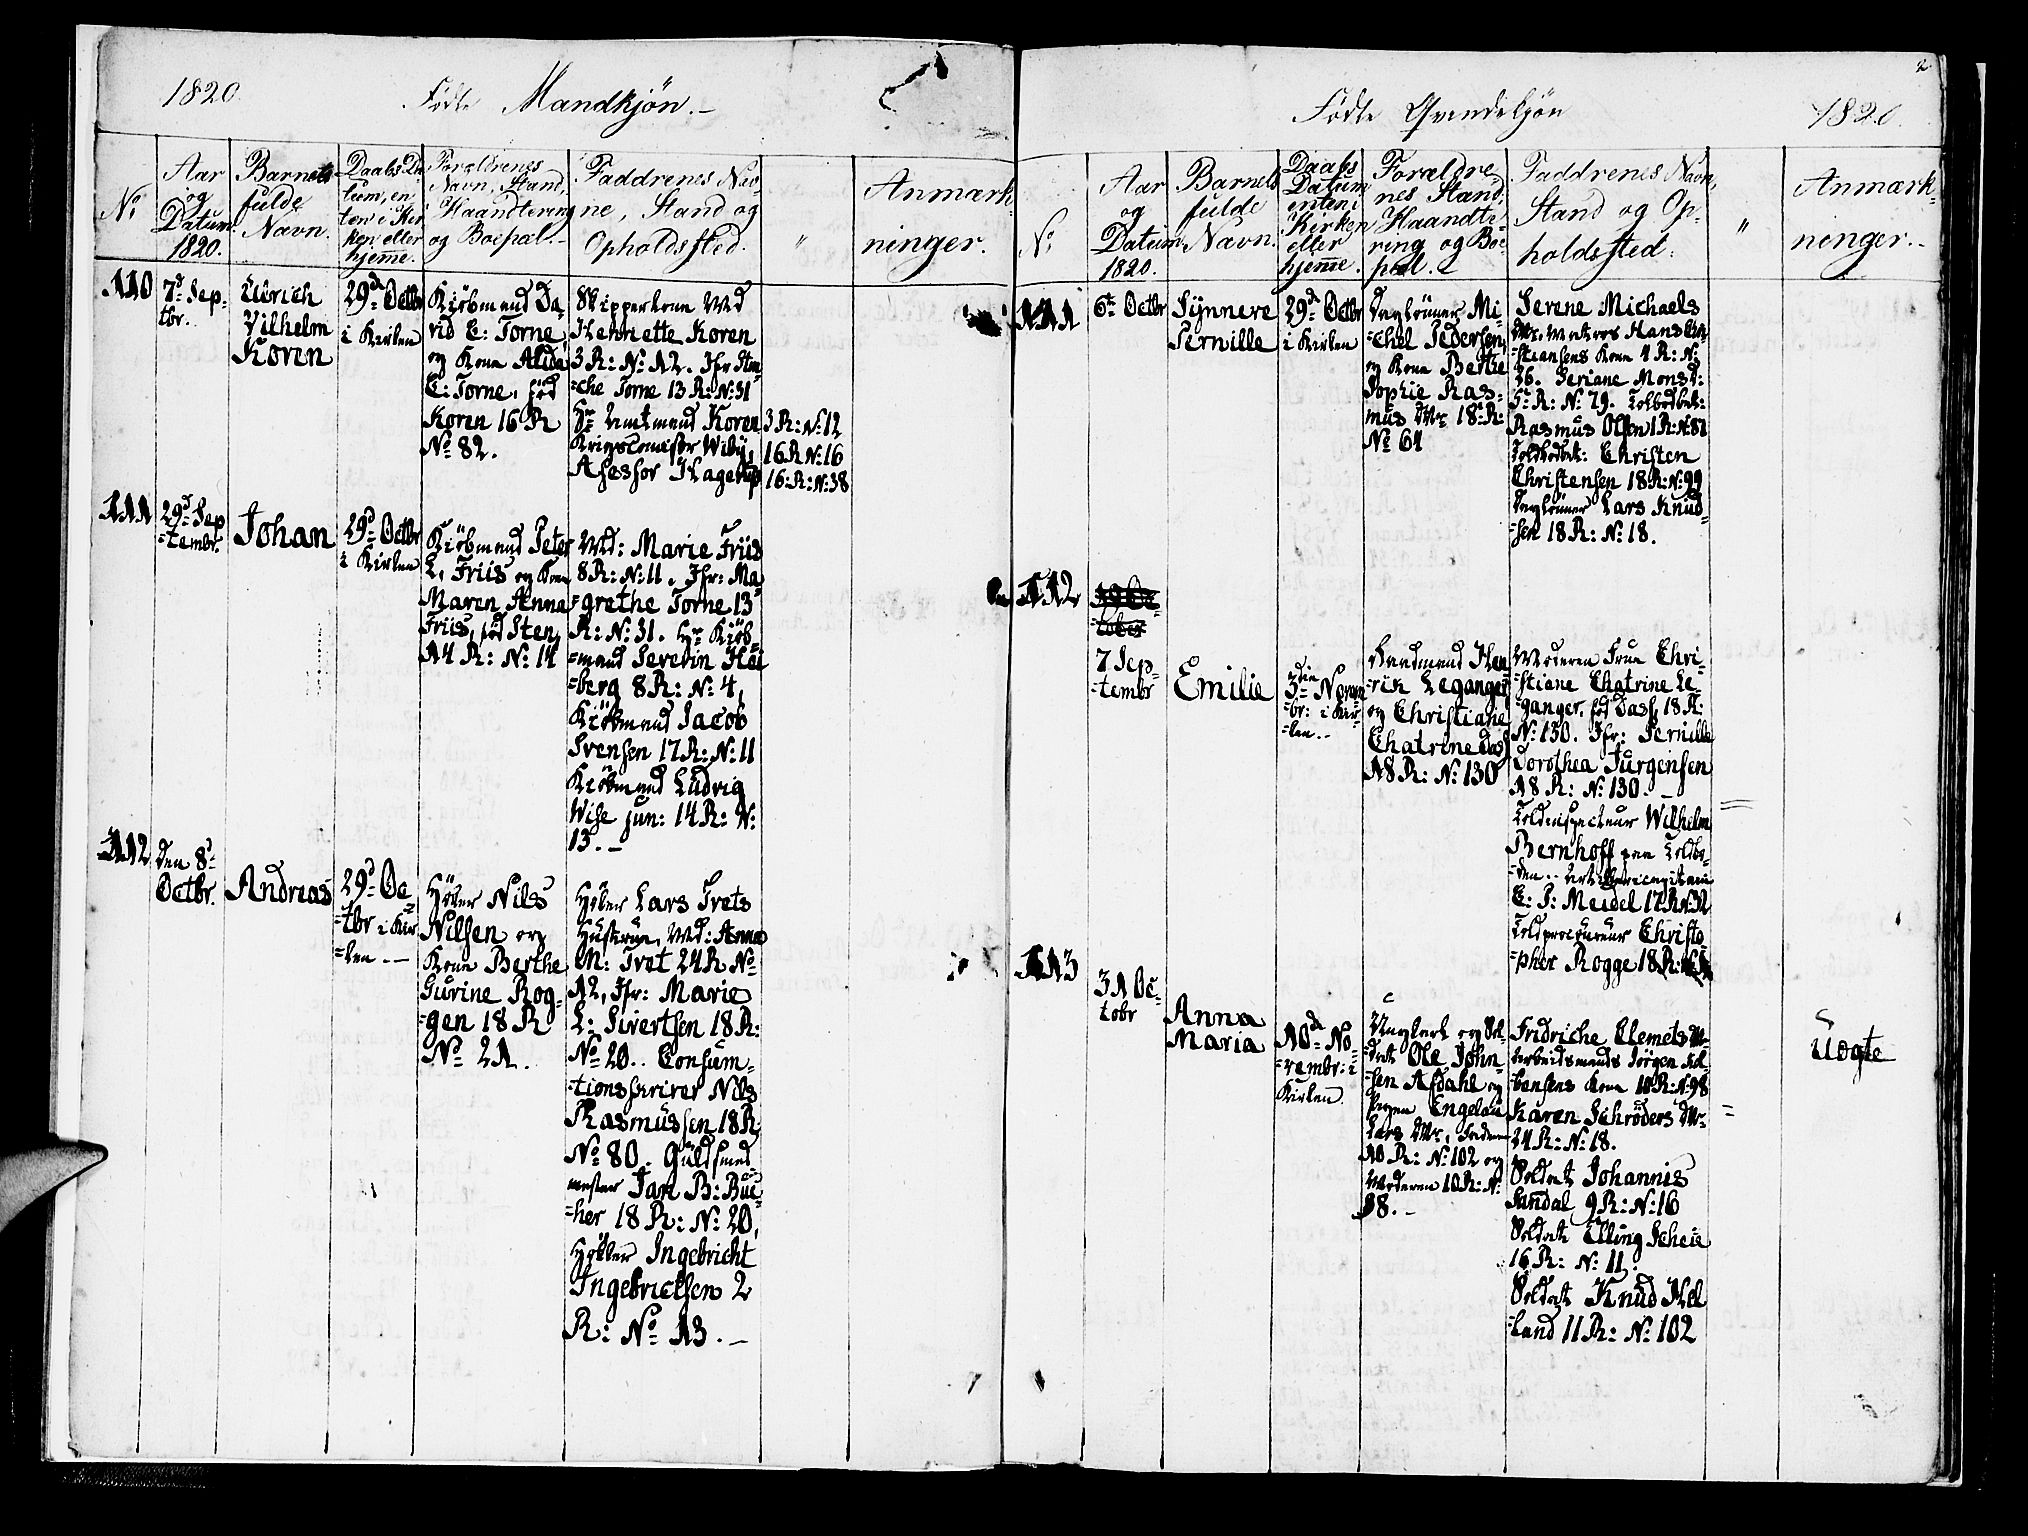 1820.
Fødte Mandkjøn.-
No
Aar
og
Datum
1820.
Barnets
fulde
Navn.
Daabs Da
tum, en
ten i Kir
ken eller
hjemme.
Forældrenes
Navn, Stand,
Haandtering
og Boepæl.-
Faddrenes Nav-
ne, Stand og
Opholdssted.
"
Anmærk-
ninger.
110
7d Sep-
tbr.
Ulrich
Vilhelm
Koren
29d Octbr
i Kirken
Kiöbmand Da-
vid E: Torne
og Kone Alida
E: Torne, föd
Koren 16 R
No 82.
Skipperkone Md
Henriette Koren
3 R: No 12. Jfr Am-
=che Torne 13 R: N: 31
Hr Amtmand Koren
Krigscomisær Wiby,
Assessor Hagerup
3 R: N: 12
16 R N: 16
16: R: N: 38
111
29d Sep
=tembr.
Johan
29d Octbr
i Kirken
Kiöbmand Peter
L. Friis og Kone
Maren Anna
Friis, föd Sten
14 R: No: 14
Md: Marie Friis
8 R: N: 11. Jfr: Ma
=grethe Torne 13
R: N: 31. Hr: Kiöb-
=mand Severin Hei
=berg 8 R: N: 4,
Kiöbmand Jacob
Svensen 17 R: N: 11
Kiöbmand Ludvig
Wise jun: 14 R: N:
13.-
112
den 8d
Octbr.
Andreas
29d Oc-
=tbr i Kir
=ken.-
Höker Nils
Nilsen og
Kone Berthe
Gurine Rog-
=gen 18 R
No 21.
Höker Lars Trets
Hustrue, Md: Anna
M: Tret 24 R No
12, Jfr: Marie
L: Sivertsen 18 R:
No 20.. Consum-
=tionsskriver Nils
Rasmussen 18 R
No 80. Guldsmed
mester Jan B: Büc
=her 18 R: No: 20,
Höker Ingebricht
Ingebrictsen 2
R: No 13.-
2
Födte Qvindekjön
1820.
No
Aar
og
Datum
1820.
Barnets
fulde
Navn.
Daabs
Datum
enten i
Kirken
eller
hjemme.
Forældre
nes Stand,
Haandte
ring og Boe
pæl.-
Faddrenes Navn,
Stand og Op-
holdssted.
"
Anmærk-
ninger.-
111
6te Octbr
Synneve
Pernille
29d Octbr
i Kirken
Daglönner Mi-
chel Pedersen,
og Kone Berthe
Sophie Ras-
mus Dtr 18 R:
No 61
Serene Michaels
Dtr, Matros Hans Chri
=stiansens Kone 4 R: N:
26. Seriane Monsd:
5 R: No 79. Tolbodbet:
Rasmus Olsen 1 R: N: 87
Toldbodbet: Christen
Christensen 18 R: N: 99
Daglönner Lars Knud-
=sen 18 R: N: 18.
112
19 Oc-
tober
7 Sep-
=tembr
Emilie
3die Novem
=br: i Kir-
=ken.-
Hen
=rik Leganger
og Christiane
Chatrine Dass
18 R: No 130
Moderen Frue Chri-
=stiane Chatrine Le-
=ganger, föd Dass, 18 R:
N: 130. Jfr: Pernille
Dorothea Jürgensen
18 R: No 130.-
Toldinspecteur Wilhelm
Bernhoff paa Toldbo-
=den..
E: P: Meidel 17 R: N: 32
Toldprocureur Christo
=pher Rogge 18 R:
=
113
31 Oc-
tobr
Anna
Maria
10d No-
=vembr: i
Kirken
Ungkarl og Sol-
dat Ole John-
=sen Asdahl og
Pigen Engelau
Lars Dtr, Faderen
10 R: No 102 og
Moderen 10 R: N:
98.-
Fridriche Clemets Dtr
Arbeidsmands Jörgen
=bensens Kone 10 R: N: 98
Karen Schröders Dtr
24 R: N: 18.
Soldat Johannis
Sandal 9 R: N: 16
Soldat Elling Scheie
16 R: N: 11.
Soldat Knud Hel
=land 11 R: No: 102
=
Uægte